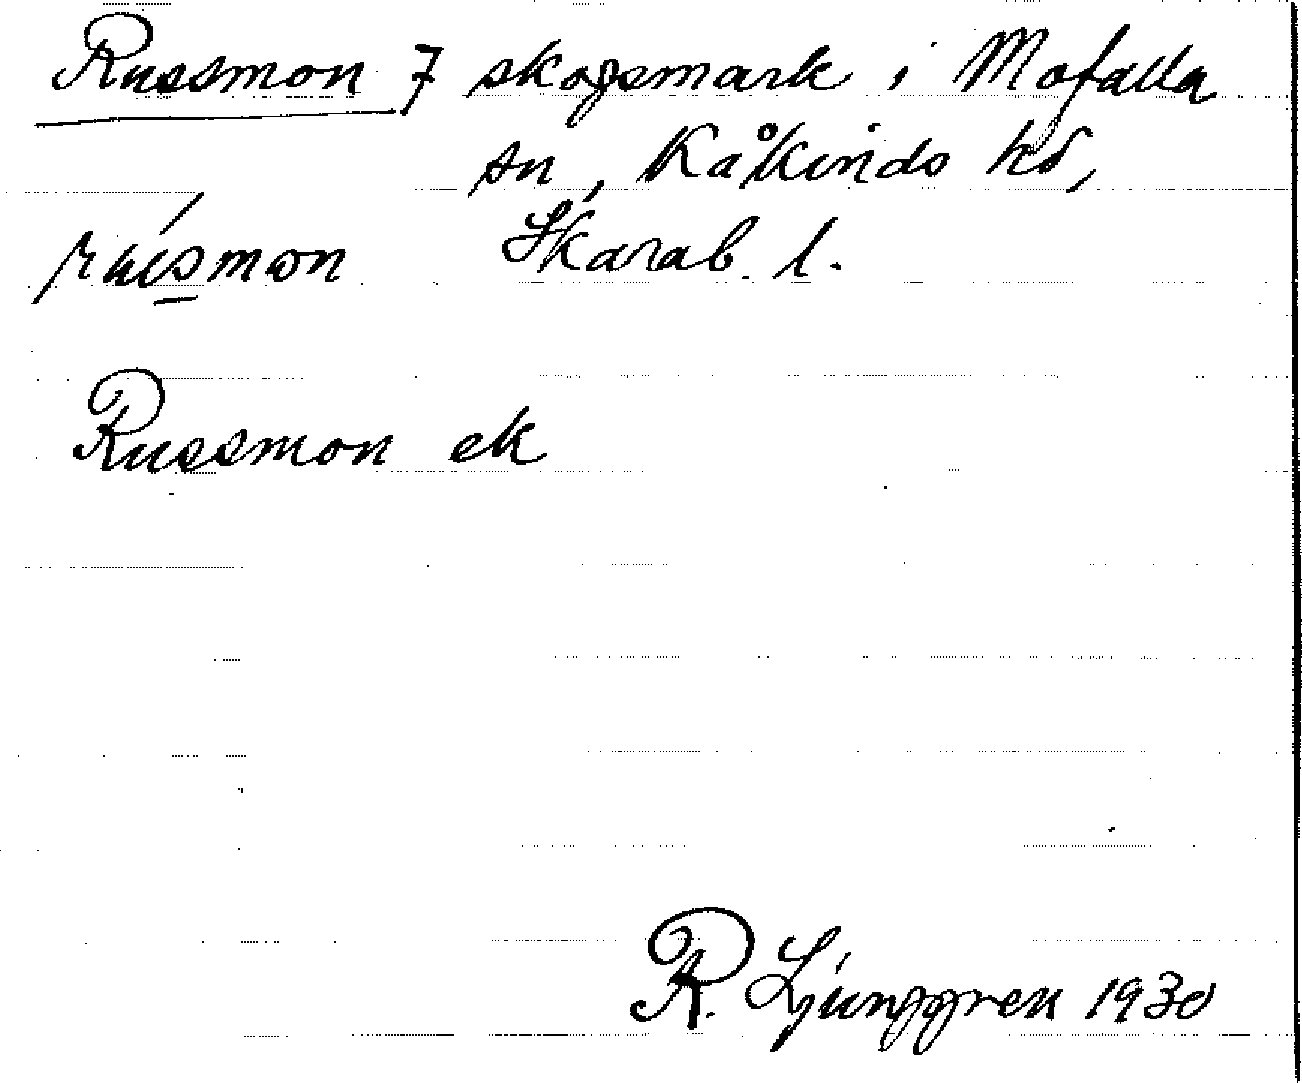 Russmon 7 skogsmark i Mofalla
sn, Kåkinds hd,
Skarab. l.
rusmon
Russmon ek
R. Ljunggren 1930